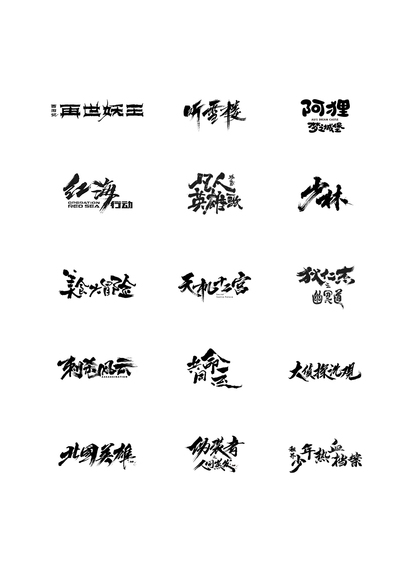 再世妖王
听雪楼
阿狸
梦之城堡
红海
OPERATION
RED SEA 行动
凡人
英雄歌
少林
美食大冒险
天机十二宫
狄仁杰
之
幽冥道
刺杀风云
共同命运
大侦探
北國英雄
伪装者
人间蒸发
少年热血档案